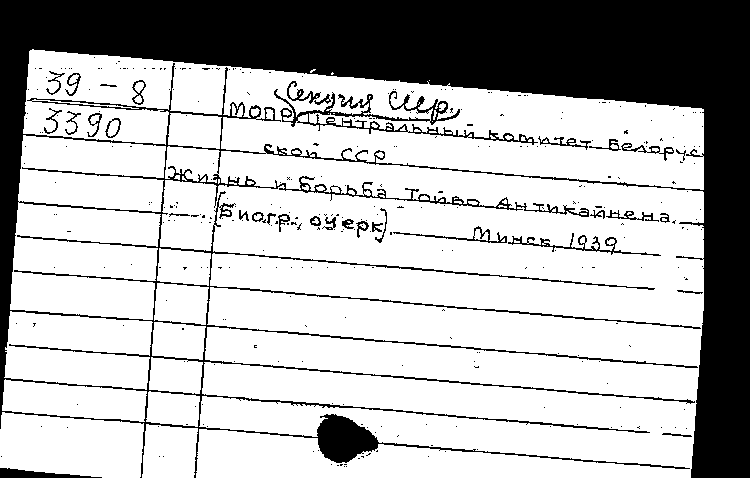 39 - 8
3390
Секция СССР.
МОПР, Центральный комитет Белорус
ской ССР
Жизнь и борьба Тойво Антикайнена.
[Биогр. очерк]. Минск, 1939